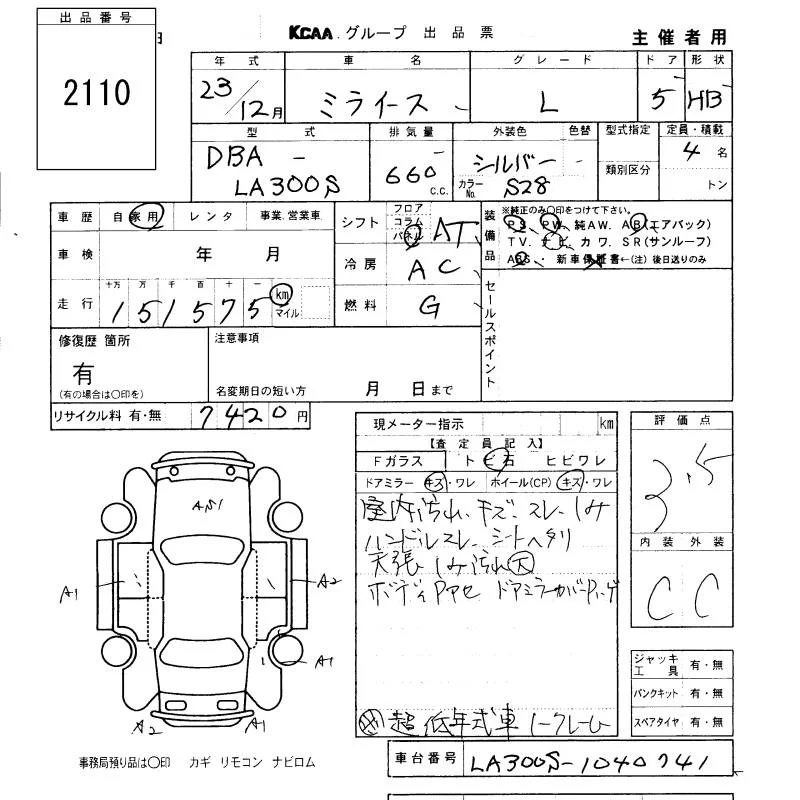 出品番号
2110
KCAA グループ 出品票
主催者用
年式 車名 グレード ドア 形状
23/12月 ミライース L 5 HB
型式 排気量 外装色 色替 型式指定 定員・積載
DBA - LA300S 660 C.C. シルバー - カラーNo. S28 類別区分 4名 トン
車歴 自家用 レンタ 事業.営業車
車検 年 月
走行 十万 万 千 百 十 一
151575 km マイル
シフト フロア コラム パネル AT
冷房 AC
燃料 G
装備品 ※純正のみ○印をつけて下さい。
PS、PW、純AW、AB(エアバック)
TV、ナビ、カワ、SR(サンルーフ)
ABS、・新車保証書←(注) 後日送りのみ
セールスポイント
修復歴 箇所
有
(有の場合は○印を)
注意事項
名変期日の短い方 月 日まで
リサイクル料 有・無 7420円
現メーター指示 km
【査定員記入】
Fガラス ト ビ石 ヒビワレ
ドアミラー キズ・ワレ ホイール(CP) キズ・ワレ
室内汚れ、キズ、スレ、シミ
ハンドルスレ シートヘタリ
天張シミ汚れ大
ボディPアセ ドアミラーカバーPハゲ
超低年式車 ノークレーム
評価点
3.5
内装 外装
C C
ジャッキ 工具 有・無
パンクキット 有・無
スペアタイヤ 有・無
AS1
A1 A2
A1
A2 A1
事務局預り品は○印 カギ リモコン ナビロム
車台番号 LA300S-1040741